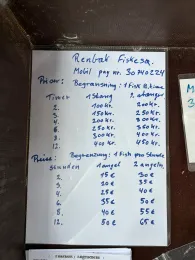 Renbæk Fiskesø.
Mobil pay nr. 30740224
Priser: Begrænsning: 1 Fisk P. time
Timer 1 stang 2. stænger
2. 100kr. 200kr.
3. 150kr. 250kr.
4. 200kr. 300kr.
6. 250kr. 350kr.
8. 300kr. 400kr.
12. 400kr.
Preise: Begrenzung: 1 Fish pro Stunde
Stunden 1 angel 2 angeln
2. 15€ 30€
3. 20€ 35€
4. 25€ 40€
6. 35€ 50€
8. 40€ 55€
12. 50€ 65€